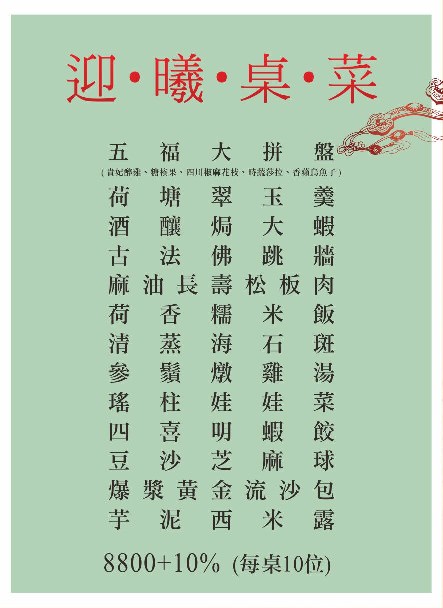 迎・曦・桌・菜
五福大拼盤
(貴妃醉雞、糖核果、四川椒麻花枝、時蔬莎拉、香蘋烏魚子)
荷塘翠玉羹
酒釀焗大蝦
古法佛跳牆
麻油長壽松板肉
荷香糯米飯
清蒸海石斑
參鬚燉雞湯
瑤柱娃娃菜
四喜明蝦餃
豆沙芝麻球
爆漿黃金流沙包
芋泥西米露
8800+10% (每桌10位)